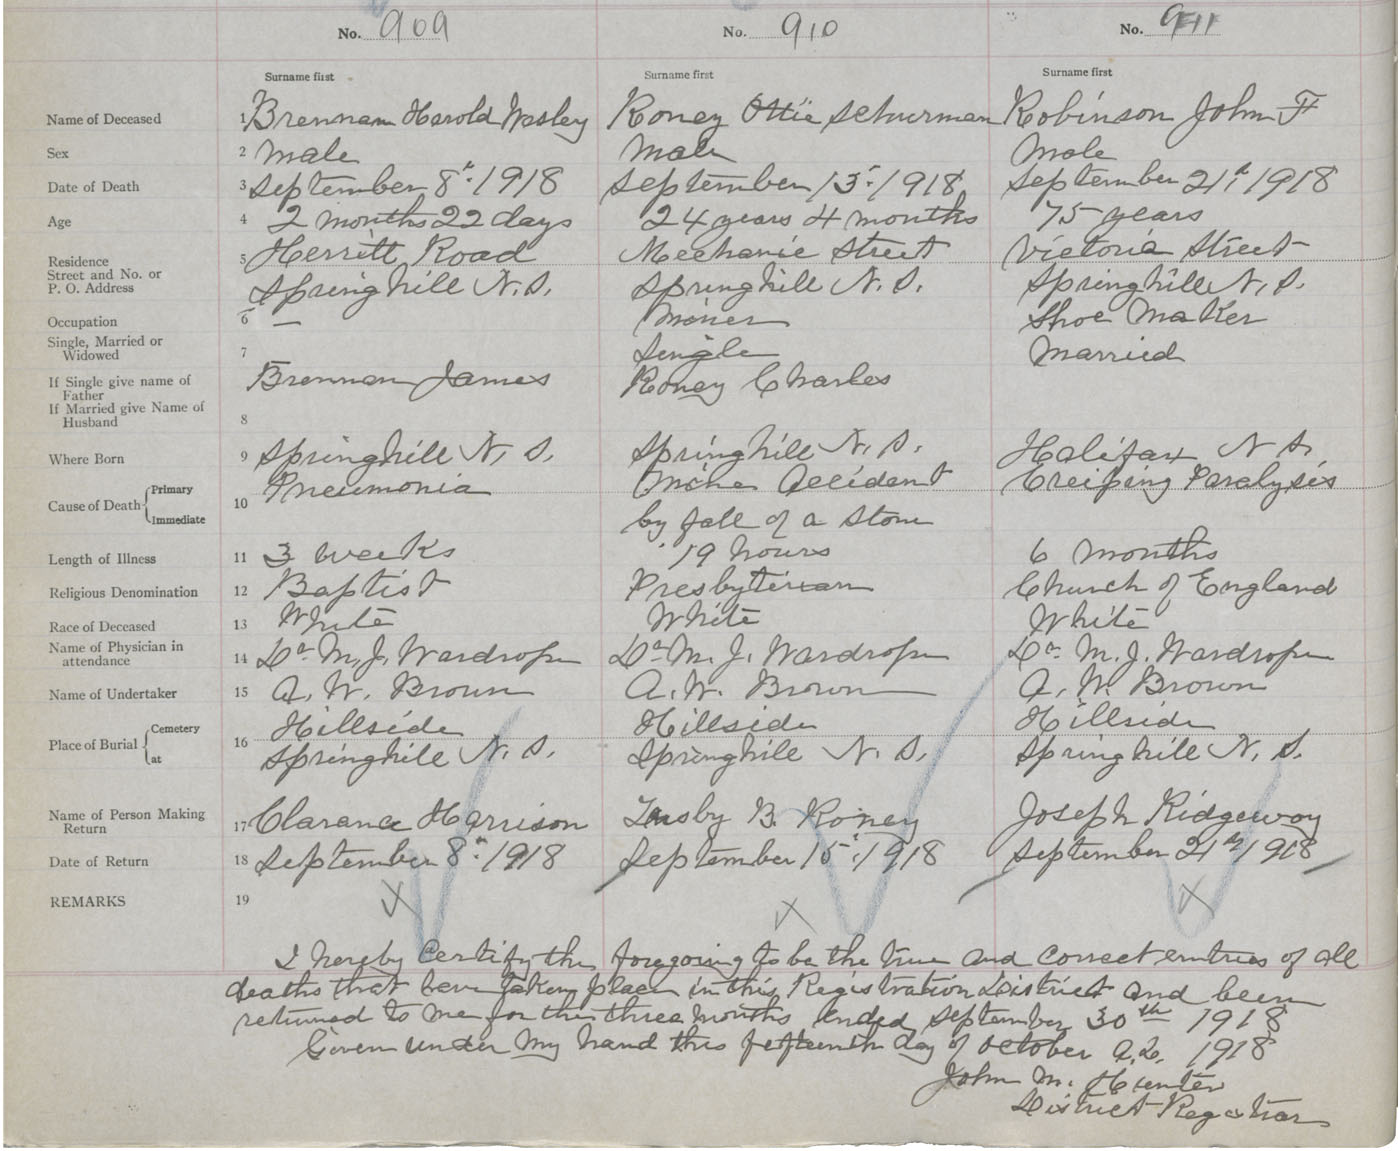 No. 909 No. 910 No. 911
Surname first Surname first Surname first
Name of Deceased 1 Brennan Harold Wesley Roney Ottie Schurman Robinson John F
Sex 2 male male male
Date of Death 3 September 8th 1918 September 13th 1918 September 21st 1918
Age 4 2 months 22 days 24 years 4 months 75 years
Residence 5 Herritt Road Mechanic Street Victoria Street
Street and No. or
P. O. Address Springhill N.S. Springhill N.S. Springhill N.S.
Occupation 6 — Miner Shoe Maker
Single, Married or
Widowed 7 Single Married
If Single give name of Brennan James Roney Charles
Father
If Married give Name of
Husband 8
Where Born 9 Springhill N.S. Springhill N.S. Halifax N S.
Cause of Death Primary 10 Pneumonia Mine Accident Creiping Paralysis
Immediate by fall of a stone
Length of Illness 11 3 weeks 19 hours 6 months
Religious Denomination 12 Baptist Presbyterian Church of England
Race of Deceased 13 White White White
Name of Physician in
attendance 14 Dr M. J. Wardrope Dr M. J. Wardrope Dr. M. J. Wardrope
Name of Undertaker 15 A. W. Brown A. W. Brown A. W. Brown
Place of Burial Cemetery 16 Hillside Hillside Hillside
at Springhill N.S. Springhill N.S. Springhill N.S.
Name of Person Making
Return 17 Clarance Harrison B. Roney Joseph Ridgeway
Date of Return 18 September 8th 1918 September 15th 1918 September 21st 1918
REMARKS 19
I hereby Certify the foregoing to be the true and correct entries of all
deaths that have taken place in this Registration District and been
returned to me for the three months ended September 30th 1918
Given under my hand this fifteenth day of October A.D. 1918
John M. Hunter
District Registrar